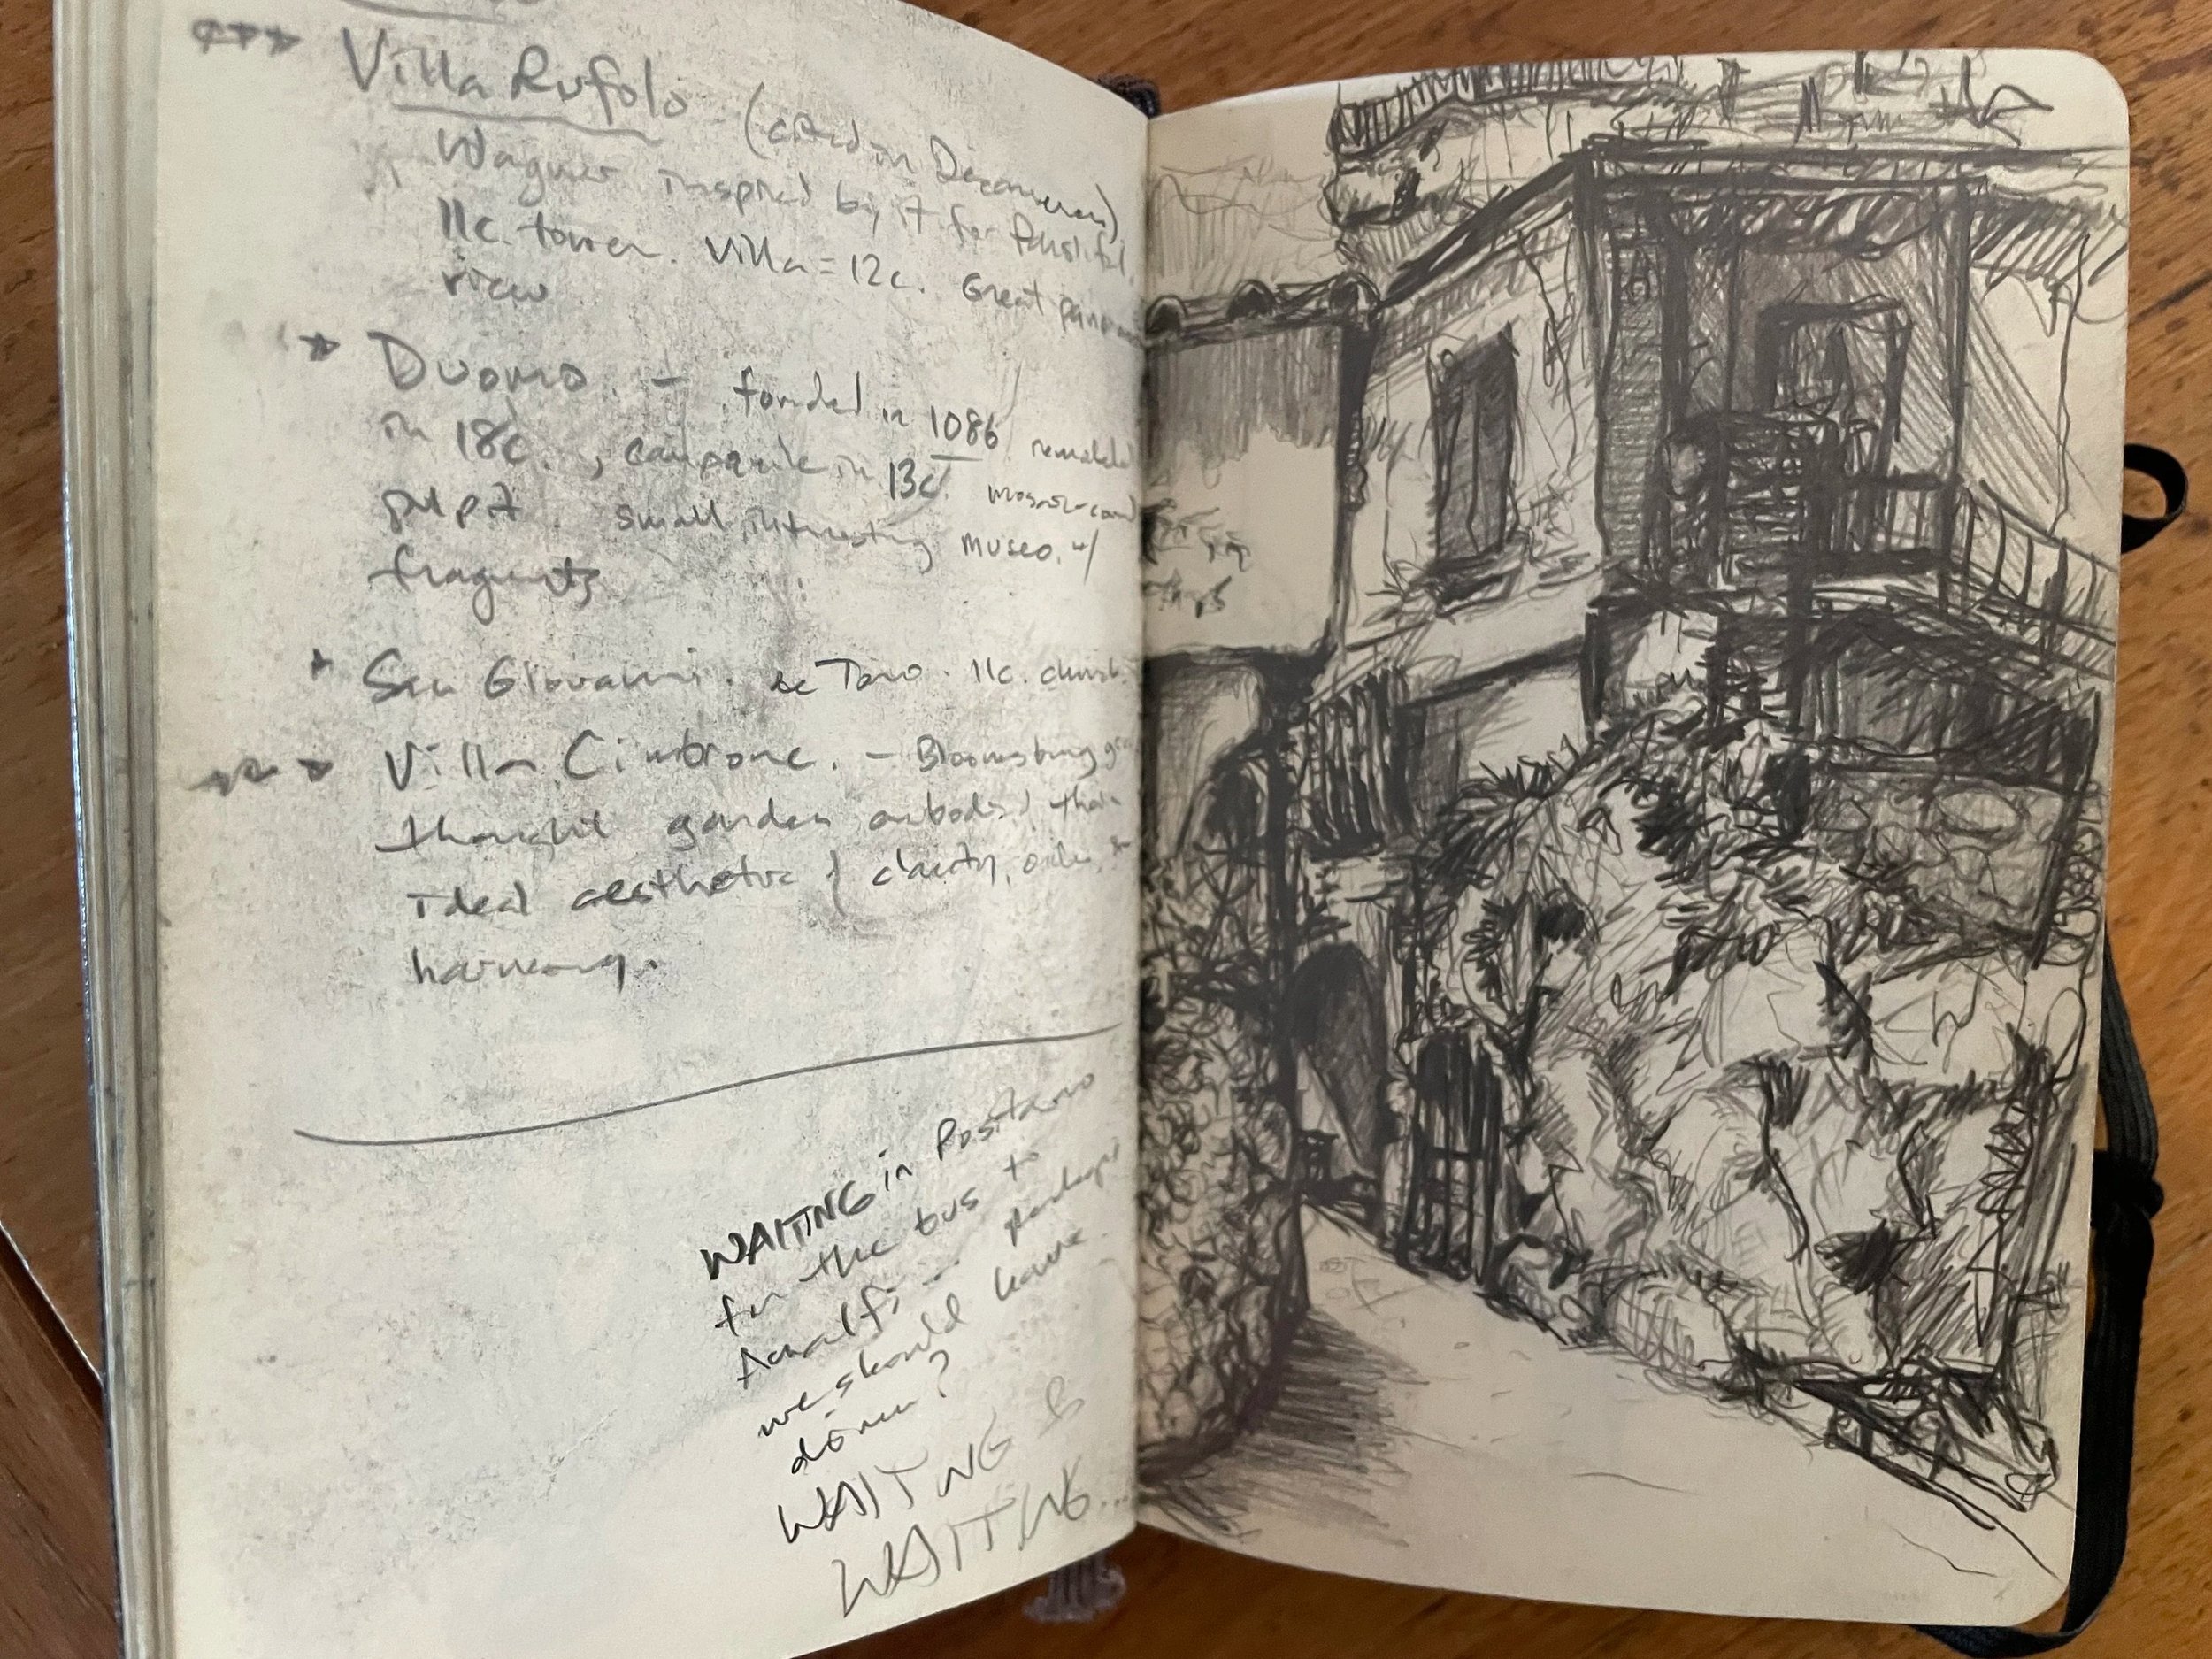 Villa Rufolo (cited in Decameron)
Wagner inspired by it for Parsifal.
11c. tower. Villa = 12c. Great
view
Duomo. - founded in 1086 remodeled
in 18c., campanile in 13c.
pulpit. small interesting museo. w/
fragments
San Giovanni. de Toro. 11c. church.
Villa Cimbrone. - Bloomsbury
thought garden embodied their
ideal aesthetic of clarity, order, &
harmony.
WAITING in Positano
for the bus to
Amalfi... perhaps
we should have
driven?
WAITING &
WAITING...